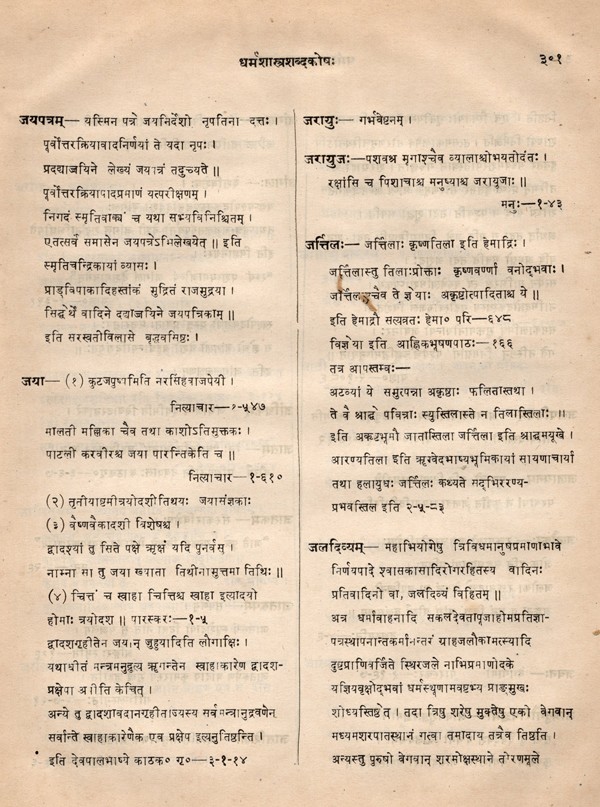 धर्मशास्त्रशब्दकोषः
३०१
जयपत्रम्— यस्मिन पत्रे जयनिर्देशो नृपतिना दत्तः ।
पूर्वोत्तरक्रियावादनिर्णयां ते यदा नृपः ।
प्रदद्याज्जयिने लेख्यं जयात्रं तदुच्यते ॥
पूर्वोत्तरक्रियापादप्रमाणं यत्परीक्षणम् ।
निगदं स्मृतिवाक्यं च यथा सभ्यविनिश्चितम् ।
एतत्सर्वं समासेन जयपत्रेऽभिलेखयेत् ॥ इति
स्मृतिचन्द्रिकायां व्यासः ।
प्राड्विपाकादिहस्तांकं मुद्रितं राजमुद्रया ।
सिद्धेर्थे वादिने दद्याज्जयिने जयपत्रिकाम् ॥
इति सरस्वतीविलासे वृद्धवसिष्ठः ।
जया— (१) कुटजपुष्पमिति नरसिंहवाजपेयी ।
नित्याचार—१-५४७
मालती मल्लिका चैव तथा काशोऽतिमुक्तकः ।
पाटली करवीरश्च जया पारन्तिकेति च ॥
नित्याचार—१-६१०
(२) तृतीयाष्टमीत्रयोदशीतिथयः जयासंज्ञकाः
(३) वैष्णवैकादशी विशेषश्च ।
द्वादश्यां तु सिते पक्षे ऋक्षं यदि पुनर्वसु ।
नाम्ना सा तु जया ख्याता तिथीनामुत्तमा तिथिः ॥
(४) चित्तं च स्वाहा चित्तिश्च स्वाहा इत्यादयो
होमाः त्रयोदश ॥ पारस्करः—१-५
द्वादशगृहीतेन जयान् जुहुयादिति लौगाक्षिः ।
यथाधीतं मन्त्रमनुद्रुत्य ऋगन्तेन स्वाहाकारेण द्वादश-
प्रक्षेपा भवीति केचित् ।
अन्ये तु द्वादशावदानगृहीताज्यस्य सर्वमन्त्रानुद्रवणेन
सर्वान्ते स्वाहाकारेणैक एव प्रक्षेप इत्यनुतिष्ठन्ति ।
इति देवपालभाष्ये काठक० गृ०—३-१-१४
जरायुः— गर्भवेष्टनम् ।
जरायुजः— पशवश्च मृगाश्चैव व्यालाश्चोभयतोदंतः ।
रक्षांसि च पिशाचाश्च मनुष्याश्च जरायुजाः ॥
मनुः—१-४३
जर्त्तिलः— जर्त्तिलाः कृष्णतिला इति हेमाद्रिः ।
जर्त्तिलास्तु तिलाःप्रोक्ताः कृष्णवर्ण्णा वनोद्भवाः ।
जर्त्तिलाश्चैव ते ज्ञेयाः अकृष्टोत्पादिताश्च ये ॥
इति हेमाद्रौ सत्यव्रतः हेमा० परि—६४८
विज्ञेया इति आह्निकभूषणपाठः—१६६
तत्र आपस्तम्बः—
अटव्यां ये समुत्पन्ना अकृष्टाः फलितास्तथा ।
ते वै श्राद्धे पवित्राः स्युस्तिलास्ते न तिलास्तिलाः ॥
इति अकृष्टभूमौ जातास्तिला जर्त्तिला इति श्राद्धमयूखे ।
आरण्यतिला इति ऋग्वेदभाष्यभूमिकायां सायणाचार्या
तथा हलायुधः जर्त्तिलः कथ्यते सद्भिररण्य-
प्रभवस्तिल इति २-५-८३
जलदिव्यम्— महाभियोगेषु त्रिविधमानुषप्रमाणाभावे
निर्णयपादे श्वासकासादिरोगरहितस्य वादिनः
प्रतिवादिनो वा, जलदिव्यं विहितम् ॥
अत्र धर्मावाहनादि सकलदेवतापूजाहोमप्रतिज्ञा-
पत्रस्थापनान्तकर्मानन्तरं ग्राहजलौकामत्स्यादि
दुष्टप्राणिवर्जिते स्थिरजले नाभिप्रमाणोदके
यज्ञियवृक्षोद्भवां धर्मस्थूणामवष्टभ्य प्राङ्मुखः
शोध्यस्तिष्ठेत् । तदा त्रिषु शरेषु मुक्तेषु एको वेगवान्
मध्यमशरपातस्थानं गत्वा तमादाय तत्रैव तिष्ठति ।
अन्यस्तु पुरुषो वेगवान् शरमोक्षस्थाने तोरणमूले